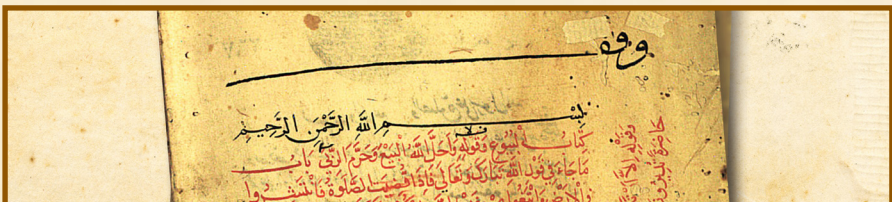 وقف
بسم الله الرَّحْمَنِ الرَّحِيمِ
كتاب البيوع وقوله وَأَحَلَّ اللَّهُ الْبَيْعَ وَحَرَّمَ الرِّبَا باب
مَا جَاءَ فِي قَوْلِ اللَّهِ تَبَارَكَ وَتَعَالَى فَاِذَا قُضِيَتِ الصَّلٰوةُ فَانْتَشِرُوا
وقوله إِلَّا أَنْ
حَاضِرَةً تُدِيرُونَ